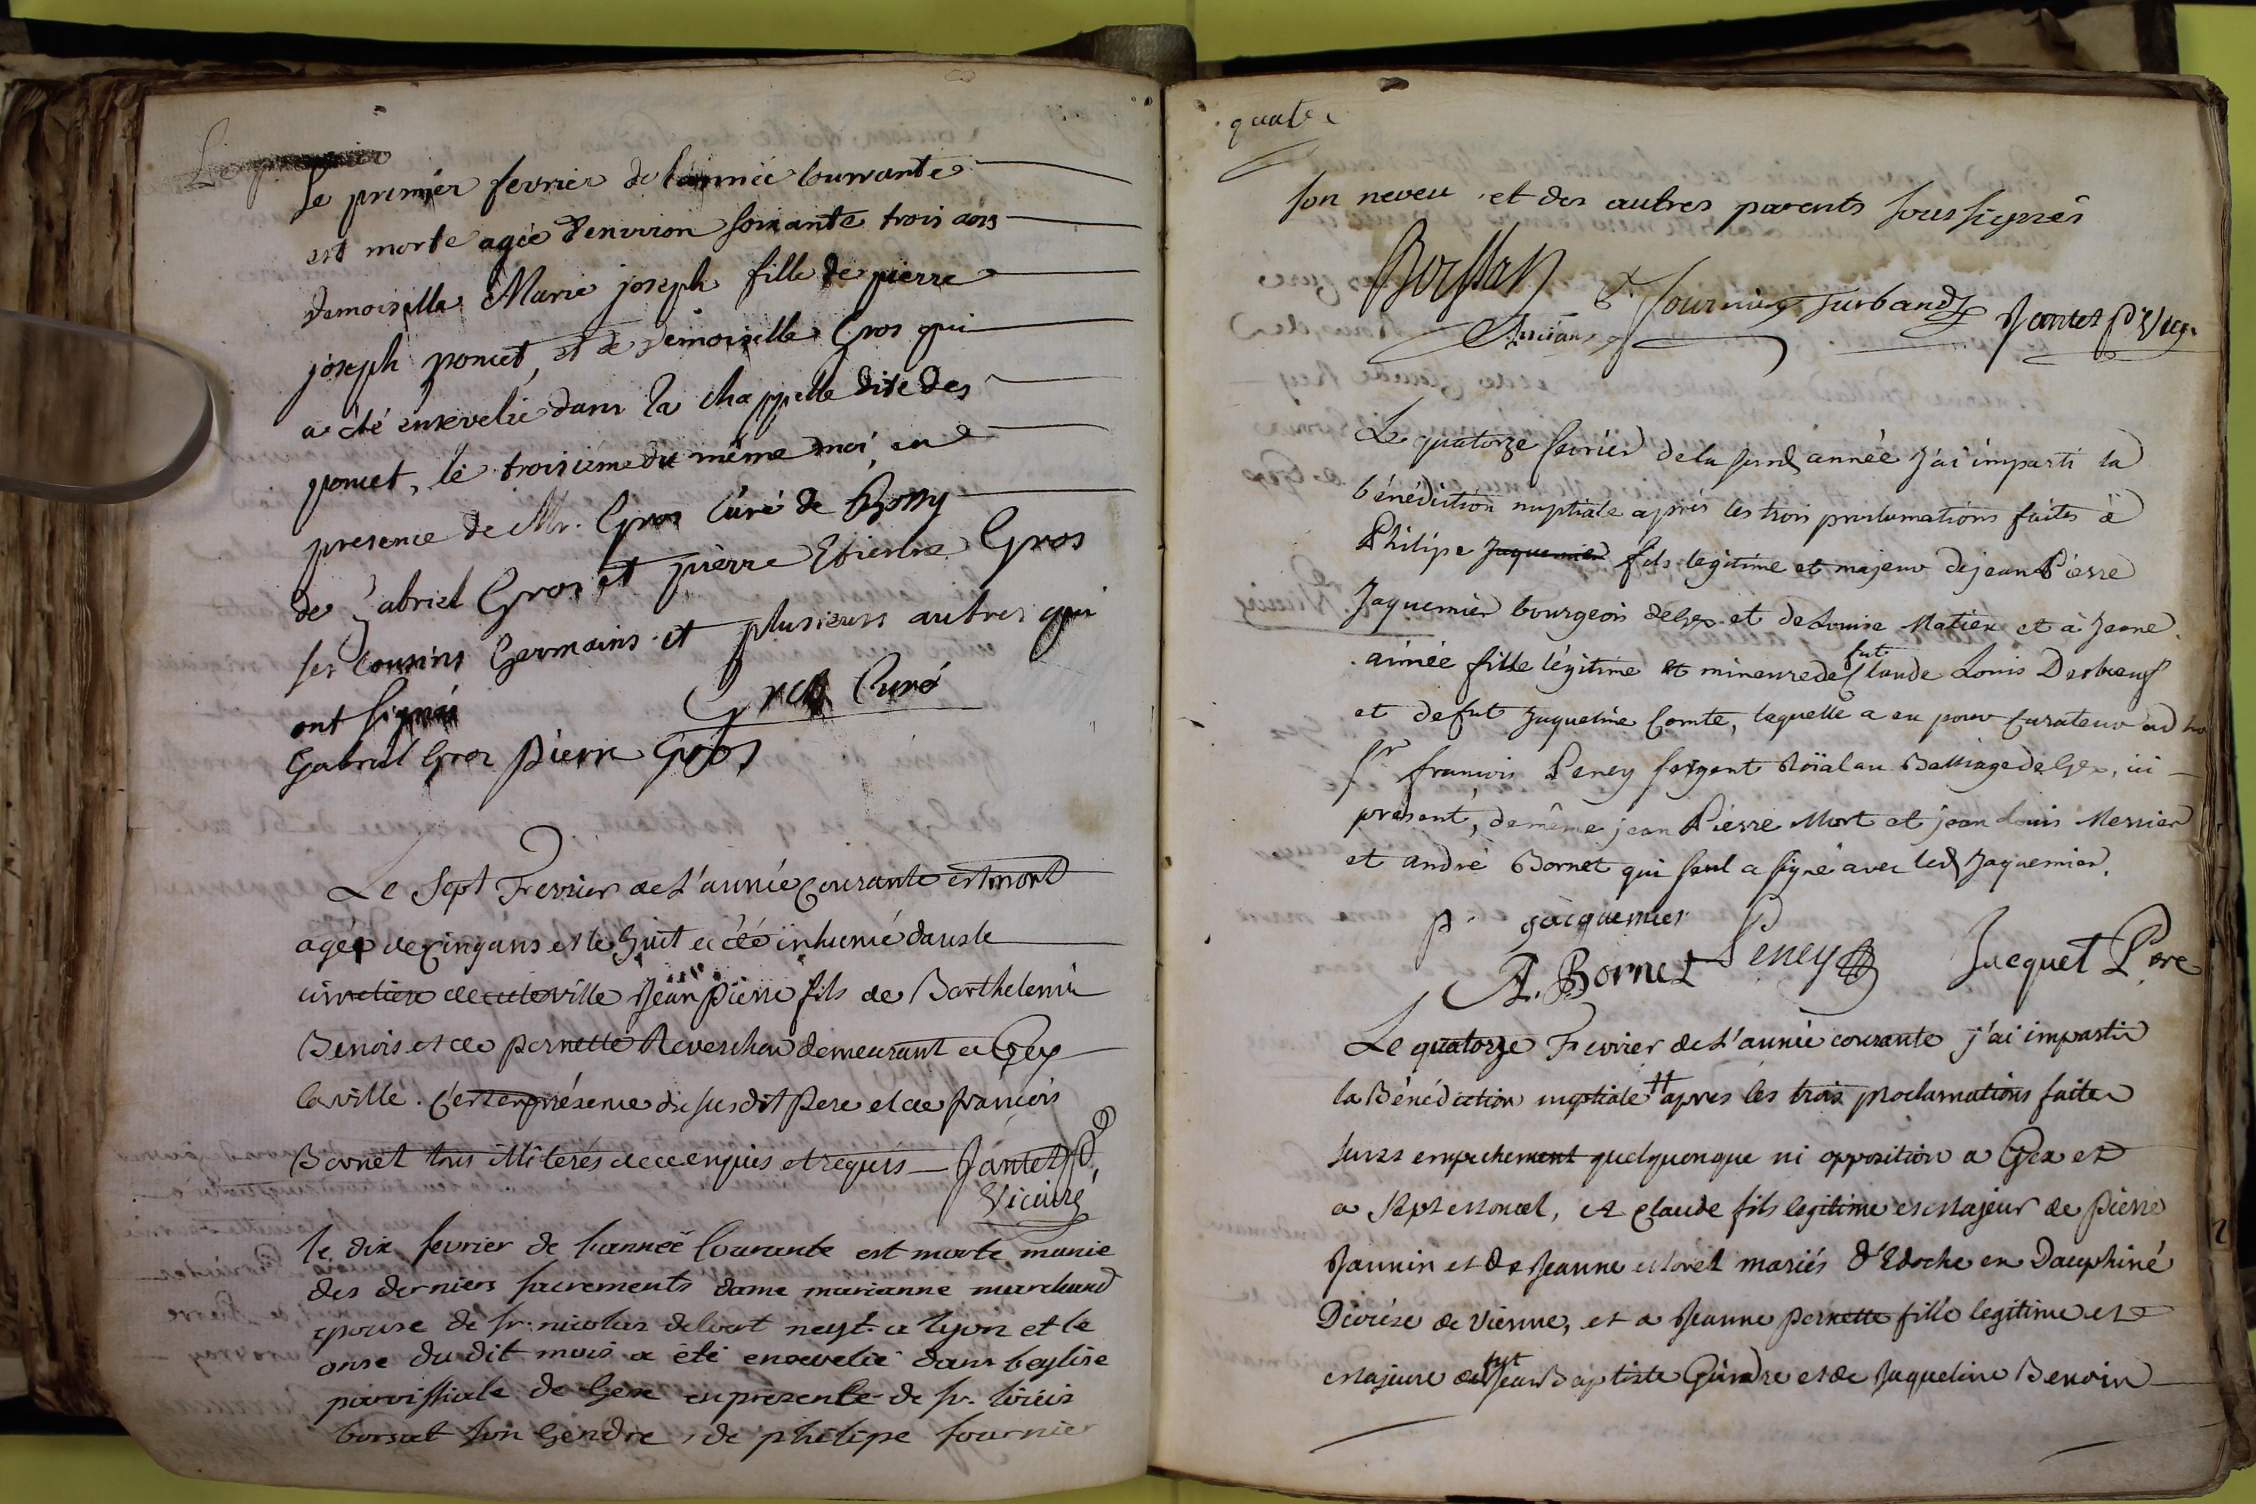 Le premier fevrier de l'année Courrante
est morte agée d'environ soixante trois ans
demoiselle Marie joseph fille de pierre
joseph poncet, et de demoiselle Gros qui
a été ensevelie dans la chappelle dite des
poncet, le troisieme du même moi, en
presence de Mr. Gros Curé de
de gabriel Gros et pierre Etienne Gros
ses Cousins Germains et plusieurs autres qui
ont signés Curé
Gabriel Gros pierre Gros
Le Sept Fevrier de L'année Courante est mort
agé de cinq ans et le huit a été inhumé dans le
cimetiere de cete ville Jean pierre fils de Barthelemi
Benois et de pernette Reverchon demeurant a Gex
la ville. C'est en présence du susdit Pere et de françois
Bornet tous illiterés de ce enquis et requis Jantet P.
Vicaire
le dix fevrier de l'année Courante est morte munie
des derniers sacrements dame marianne marchand
epouse de sr. nicolas delvort negt. a lyon et le
onse du dit mois a été ensevelie dans l'eglise
paroissiale de Gex en presence de sr.
borsat son Gendre, de philipe fournier
quatre
son neveu et des autres parents soussignés
Borssat fournier Jantet P. Vicr.
Le quatorze fevrier de la susd. année j'ai imparti la
bénédiction nuptiale après les trois proclamations faites à
Philipe Jaquemier fils legitime et majeur de jean Pierre
Jaquemier bourgeois de Gex et de Louise Matieu et à Jeane
aimée fille légitime et mineure de fut Claude Louis Desboeufs
et de fut Jaqueline Comte, laquelle a eu pour Curateur ad hoc
sr francois Peney sergent Roïal au Balliage de Gex, ici
présent, de même jean Pierre Mort et jean Louis Mercier
et andré Bornet qui seul a signé avec led. Jaquemier.
p. jacquemier
A. Bornet Peney Jacquet P.
Le quatorze Fevrier de L'année courante j'ai imparti
la Bénédiction nuptiale apres les trois proclamations faites
sans empechement quelquonque ni opposition a Gex et
a Septmoncel, A Claude fils legitime et Majeur de Pierre
Jannin et de Jeanne Morel mariés d'Edoche en Dauphiné
Diocèse de Vienne, et a Jeanne pernette fille legitime et
Majeure de fut Jean Baptiste Gindre et de Jaqueline Benoin